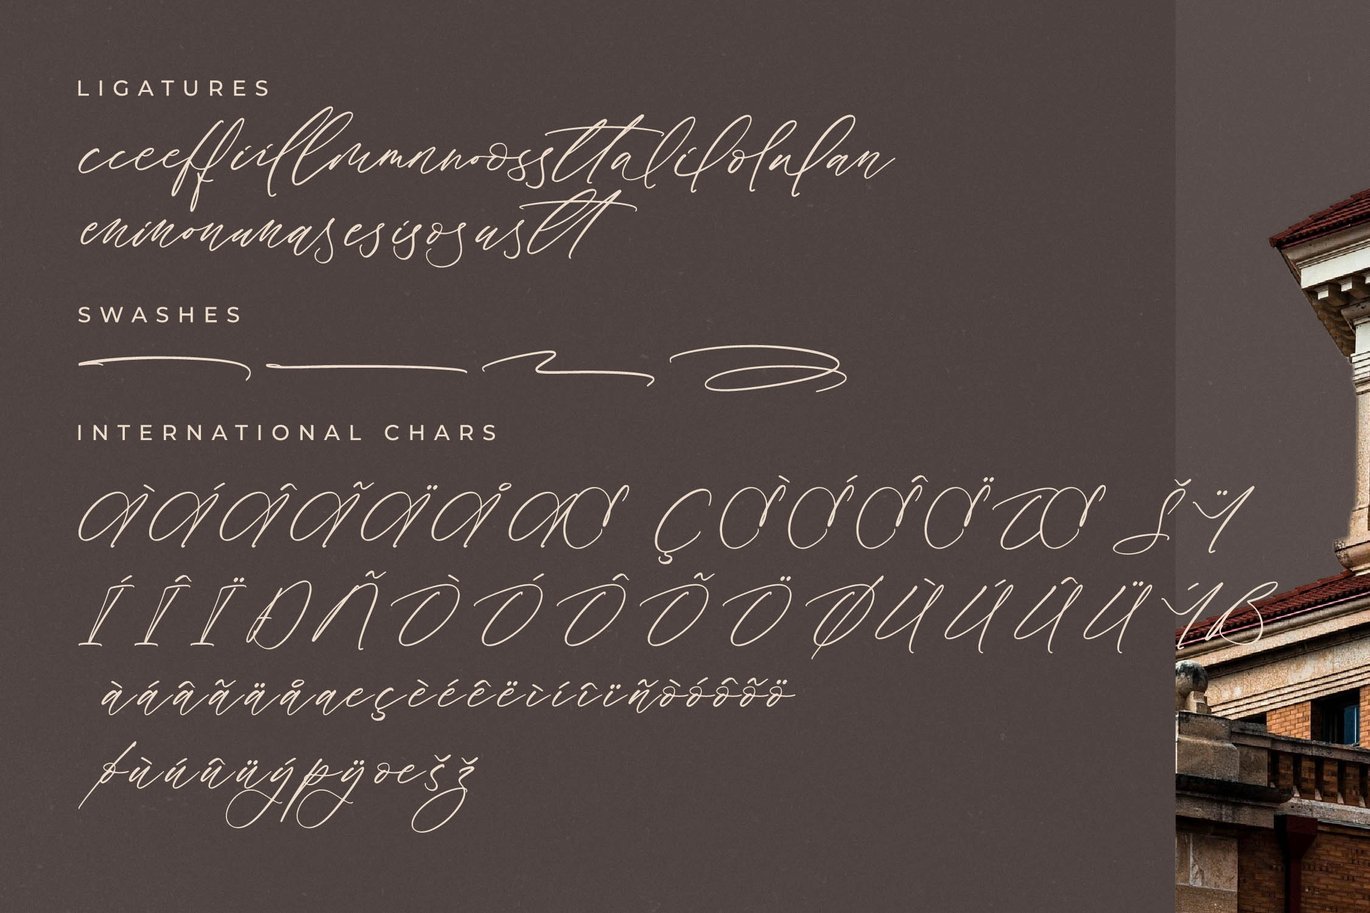 LIGATURES
cceeffiillmmnnoossttalilolulan
eninonunasesisosusltt
SWASHES
INTERNATIONAL CHARS
ÀÁÂÃÄÅÆ ÇÈÉÊËŒ ŠŸ
ÍÎÏÐÑÒÓÔÕÖØÙÚÛÜÝß
àáâãäåæçèéêëìíîïñòóôõö
øùúûüýþÿœšž